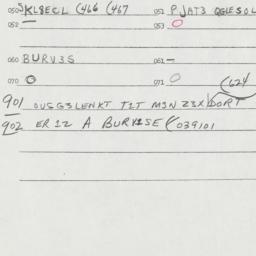 050 JKL8ECL (466 (467 051 PJAT3 QELESOL
052 — 053 O
060 BURV3S 061 —
070 O 071 O
(624
901 OUSG3LENKT T1T M3N Z3X DORT
902 ER 12 A BURV1SE (039101